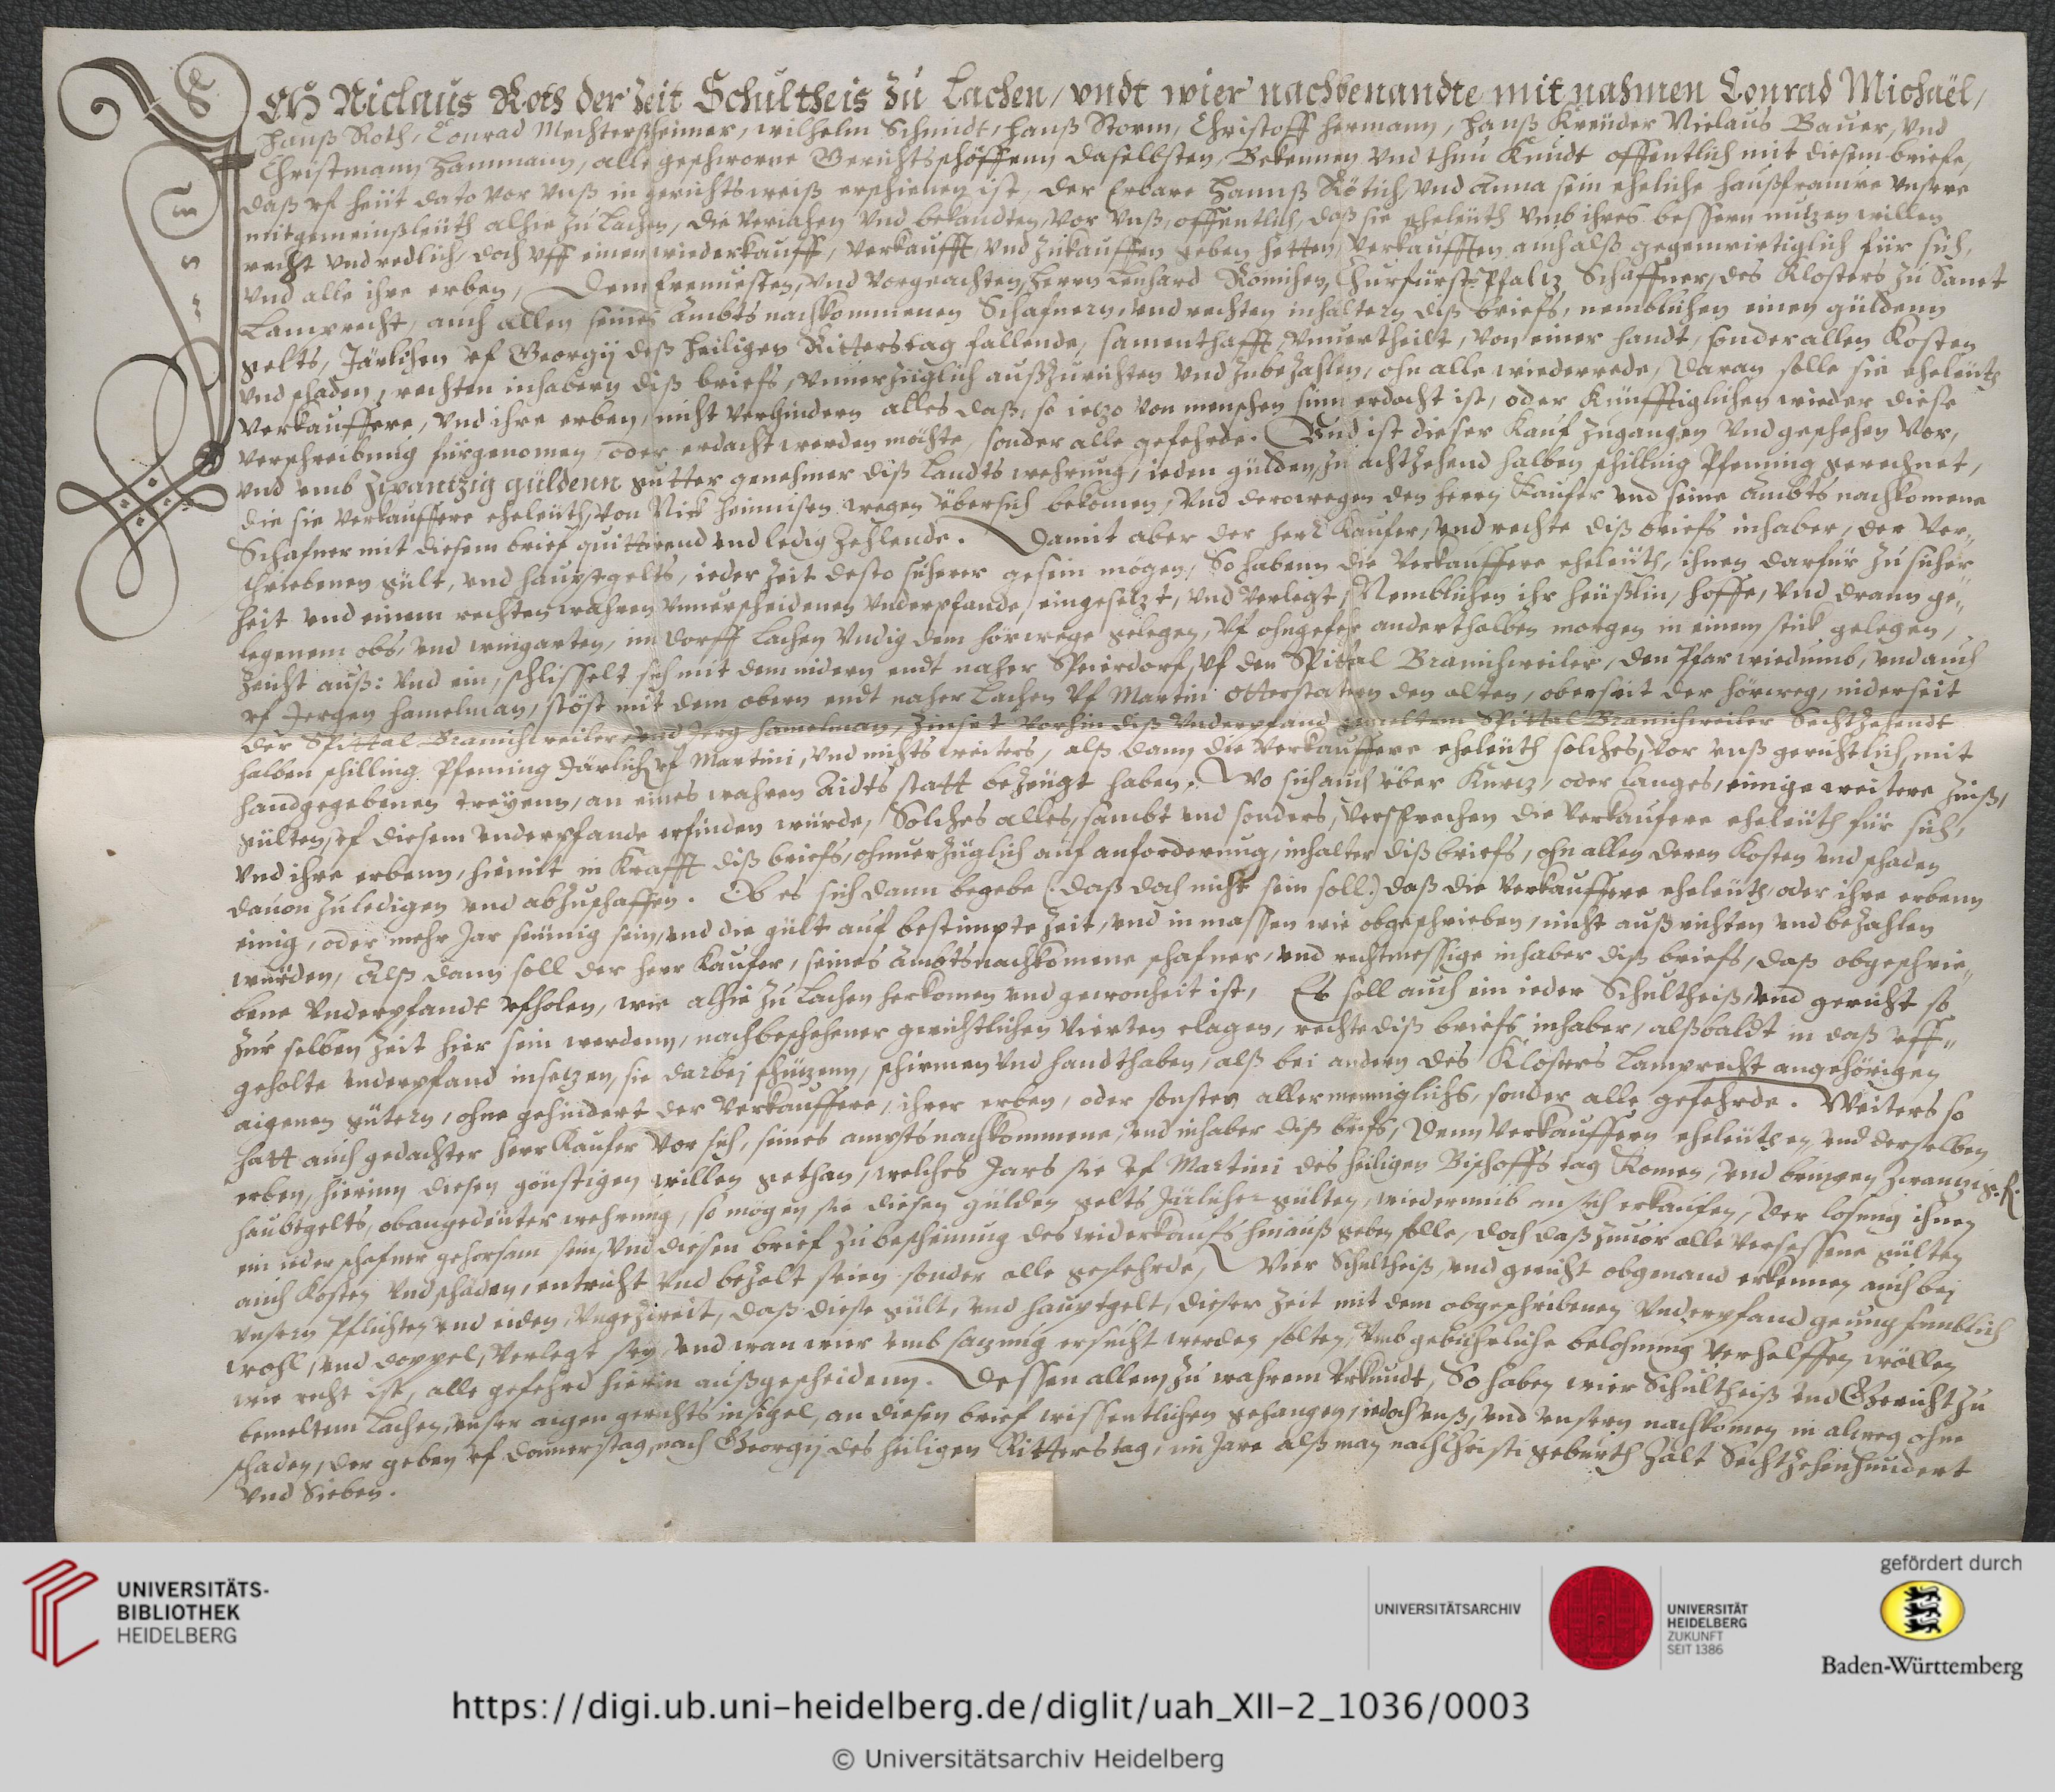 ICH Niclaus Roth der Zeit Schultheis zu Lachen, vndt wier nachbenandte mit nahmen Conrad Michaël,
Hanß Roth, Conrad Mechterßheimer, wilhelm Schmidt, Hanß Storm, Christoff Hermann, Hanß Kreüder Niclaus Bauer, vnd
Christmann Hanmann, alle geschworne Gerichtsschöffenn daselbsten, Bekennen vnd thun Kundt offentlich mit diesem briefe,
daß vf heüt dato vor vnß in gerichtsweiß erschienen ist, der Erbare Hannß Rötich, vnd Anna sein eheliche haußfrauwe vnsere
mitgemeinßleüth alhie zu Lachen, die veriahen vnd bekandten, vor vnß, offentlich, daß sie eheleüth vmb ihres bessern nutzen willen
recht vnd redlich, doch vff einen wiederkauff, verkaufft, vnd zukauffen geben hetten, verkaufften auch alß gegenwirtiglich für sich,
vnd alle ihre erben, Dem Erenuesten, vnd vorgeachten, Herrn Lenhard Römichen, Churfürst: Pfaltz Schaffner, des Klosters zu Sanct
Lamprecht, auch allen seines Ambts nachkommenen Schafnern, vnd rechten inhaltern diß briefs, nemblichen einen güldenn
gelts, Järlichen vf Georgij deß heiligen Ritterstag fallende, samenthafft, vnuertheilt, von einer handt, sonder allen Kosten
vnd schaden, rechten inhabern diß briefs, vnuerzüglich außzurichten vnd zubezahlen, ohn alle wiederrede, daran solle sie eheleüth
verkauffere, vnd ihre erben, nicht verhindern alles daß, so ietzo von menschen sinn erdacht ist, oder künfftiglichen wieder diese
verschreibung fürgenomen, oder erdacht werden möchte, sonder alle gefehrde. Vnd ist dieser Kauf zugangen vnd geschehen vor,
vnd vmb zwantzig güldenn gutter genehmer diß Landts wehrung, ieden gülden, zu achtzehend halben schilling Pfenning gerechnet,
die sie verkauffere eheleüth, von Nick Heinnisen wegen übersich bekomen, vnd derowegen den herrn Kaufer vnd seine Ambts nachkomene
Schafner mit diesem brief quittirend vnd ledig zehlende. Damit aber der herr Kaufer, vnd rechte diß briefs inhaber, der ver„
schriebenen gült, vnd hauptgelts, ieder zeit desto sicherer gesein mögen, So habenn die verkauffere eheleüth, ihnen darfür zu sicher„
heit vnd einem rechten wahren vnuerscheidenen vnderpfande, eingesetzt, vnd verlegt, Nemblichen ihr heüßlin, hoffe, vnd drann ge„
legenem obs, vnd wingarten, im dorff Lachen vndig dem hörwege gelegen, vf ohngefehr anderthalben morgen in einem stük gelegen,
zeicht auß: vnd ein, schlisselt sich mit dem nidern endt naher Speierdorf, vf den Spittal Branichweiler, den Pfarwiedumb, vnd auch
vf Jergen Hamelman, stöst mit dem obern endt naher Lachen vf Martin Otterstattern den alten, oberseit der hörweg, niderseit
der Spittal Branichweiler, vnd Jerg Hamelman, Zinset vorhin diß vnderpfand gemeltem Spittal Branichweiler Sechtzehendt
halben schilling Pfenning Järlich vf Martini, vnd nichts weiters, alß dann die verkauffere eheleüth solches, vor vnß gerichtlich, mit
handgegebenen treyenn, an eines wahren Aidts statt bezeügt haben, Wo sich auch über Kurtz, oder langes, einige weitere Zinß,
gülten, vf diesem vnderpfande erfinden würde, Solches alles, sambt vnd sonders, versprechen die verkaufere eheleüth für sich,
vnd ihre erbenn, hiemit in Krafft diß briefs, ohnuerzüglich auf anforderung, inhalter diß briefs, ohn allen deren Kosten vnd schaden
dauon zuledigen vnd abzuschaffen. Ob es sich dann begebe (daß doch nicht sein soll) daß die verkauffere eheleüth, oder ihre erbenn
einig, oder mehr Jar seümig sein, vnd die gült auf bestimpte zeit, vnd inmassen wie obgeschrieben, nicht außrichten vnd bezahlen
würden, Alß dann soll der herr Kaufer, seines Ambtsnachkomene schafner, vnd rechtmessige inhaber diß briefs, daß obgeschrie„
bene vnderpfandt vfholen, wie alhie zu Lachen herkomen vnd gewonheit ist, Es soll auch ein ieder Schultheiß, vnd gericht so
zur selben zeit hier sein werdenn, nach beschehener gerichtlichen vierten clagen, rechte diß briefs inhaber, alßbaldt in daß vff„
geholte vnderpfand insetzen, sie darbej schützenn, schirmen vnd handthaben, alß bei andern des Klosters Lamprecht angehörigen
aigenen gütern, ohne gehindert der verkauffere, ihrer erben, oder sonsten allermenniglichs, sonder alle gefehrde. Weiters so
hatt auch gedachter herr Kaufer vor sich, seines amptsnachkommene, vnd inhaber diß briefs, denn verkauffern eheleüthen, vnd derselben
erben, hierinn diesen günstigen willen gethan, welches Jars sie vf Martini des heiligen Bischoffs tag komen, vnd bringen zwanzig fl.
haubtgelts, obangedeüter wehrung, so mögen sie diesen gülden gelts Järlicher gülten, wiederumb an sich erkaufen, der losung ihnen
ein ieder schafner gehorsam sein, vnd diesen brief zu bescheinung des widerkaufs hinauß geben solle, doch daß zuuor alle versessene gülten
auch Kosten vnd schaden, entricht vnd bezalt seien sonder alle gefehrde, Wier Schultheiß, vnd gericht obgenand erkennen auch bei
vnsern Pflichten vnd eiden, vngezweit, daß diese gült, vnd hauptgelt, dieser zeit mit dem obgeschribenen vnderpfand genug samblich
wohl, vnd doppel, verlegt sey, vnd wan wier vmb satzung ersucht werden solten, vmb gebührliche belohnung verhelffen wöllen
wie recht ist, alle gefehrd hierin außgescheidenn. Dessen allem zu wahrem Vrkundt, So haben wier Schultheiß vnd Gericht zu
bemeltem Lachen, vnser aigen gerichts insigel, an diesen brief wissentlichen gehangen, iedoch vnß, vnd vnsern nachkomen in alweg ohne
schaden, der geben vf donnerstag, nach Georgij des heiligen Ritterstag, im Jare alß man nach Christi geburth zalt Sechtzehenhundert
vnd Sieben.
UNIVERSITÄTS-
BIBLIOTHEK
HEIDELBERG
UNIVERSITÄTSARCHIV
UNIVERSITÄT
HEIDELBERG
ZUKUNFT
SEIT 1386
gefördert durch
Baden-Württemberg
https://digi.ub.uni-heidelberg.de/diglit/uah_XII-2_1036/0003
© Universitätsarchiv Heidelberg